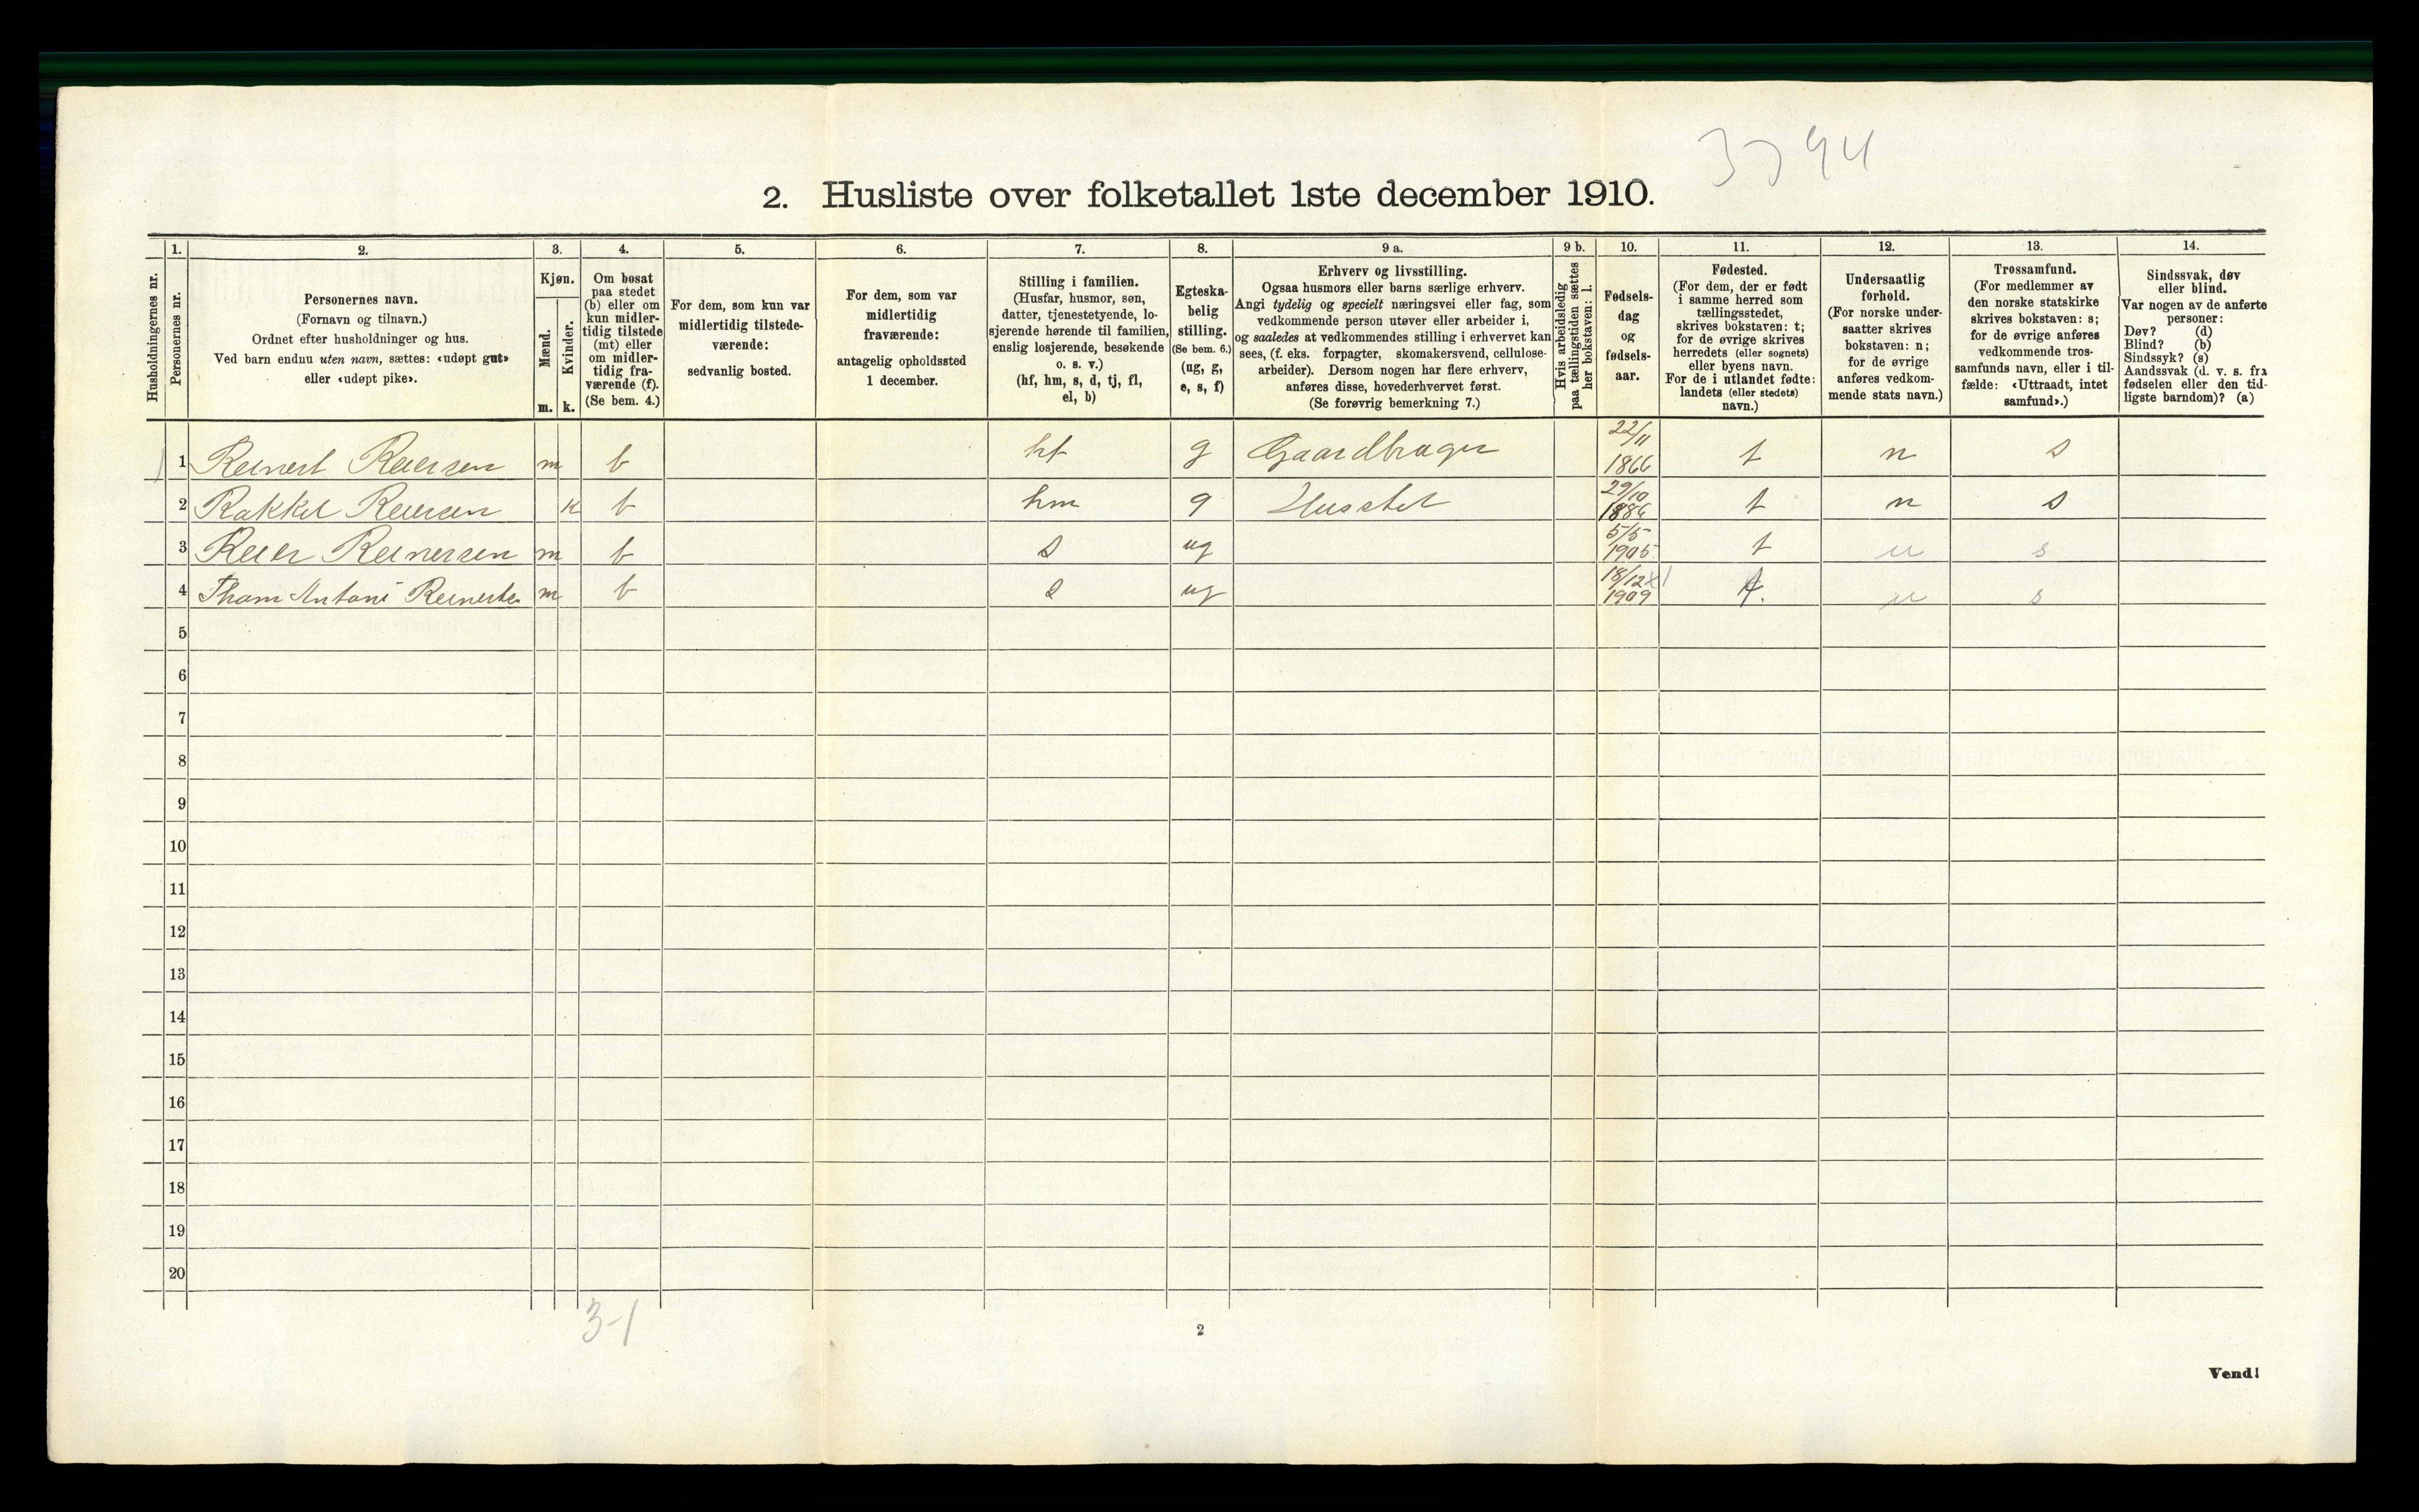 3794
2. Husliste over folketallet 1ste december 1910.
Husholdningernes nr.
1.
Personernes nr.
2.
Personernes navn.
(Fornavn og tilnavn.)
Ordnet efter husholdninger og hus.
Ved barn endnu uten navn, sættes: «udøpt gut»
eller «udøpt pike».
3.
Kjøn.
Mænd.
Kvinder.
m. k.
4.
Om bosat
paa stedet
(b) eller om
kun midler-
tidig tilstede
(mt) eller
om midler-
tidig fra-
værende (f).
(Se bem. 4.)
5.
For dem, som kun var
midlertidig tilstede-
værende:
sedvanlig bosted.
6.
For dem, som var
midlertidig
fraværende:
antagelig opholdssted
1 december.
7.
Stilling i familien.
(Husfar, husmor, søn,
datter, tjenestetyende, lo-
sjerende hørende til familien,
enslig losjerende, besøkende
o. s. v.)
(hf, hm, s, d, tj, fl,
el, b)
8.
Egteska-
belig
stilling.
(Se bem. 6.)
(ug, g,
e, s, f)
9 a.
Erhverv og livsstilling.
Ogsaa husmors eller barns særlige erhverv.
Angi tydelig og specielt næringsvei eller fag, som
vedkommende person utøver eller arbeider i,
og saaledes at vedkommendes stilling i erhvervet kan
sees, (f. eks. forpagter, skomakersvend, cellulose-
arbeider). Dersom nogen har flere erhverv,
anføres disse, hovederhvervet først.
(Se forøvrig bemerkning 7.)
9 b.
Hvis arbeidsledig
paa tællingstiden sættes
her bokstaven: l.
10.
Fødsels-
dag
og
fødsels-
aar.
11.
Fødested.
(For dem, der er født
i samme herred som
tællingsstedet,
skrives bokstaven: t;
for de øvrige skrives
herredets (eller sognets)
eller byens navn.
For de i utlandet fødte:
landets (eller stedets)
navn.)
12.
Undersaatlig
forhold.
(For norske under-
saatter skrives
bokstaven: n;
for de øvrige
anføres vedkom-
mende stats navn.)
13.
Trossamfund.
(For medlemmer av
den norske statskirke
skrives bokstaven: s;
for de øvrige anføres
vedkommende tros-
samfunds navn, eller i til-
fælde: «Uttraadt, intet
samfund».)
14.
Sindssvak, døv
eller blind.
Var nogen av de anførte
personer:
Døv? (d)
Blind? (b)
Sindssyk? (s)
Aandssvak (d. v. s. fra
fødselen eller den tid-
ligste barndom)? (a)
1 Reinert Reiersen m b hf g Gaardbruger 22/11 1866 t n s
2 Rakkel Reiersen k b hm g Husstel 29/10 1886 t n s
3 Reier Reinersen m b s ug 5/5 1905 t n s
4 Thom Antoni m b s ug 18/12 1909 t. n s
5
6
7
8
9
10
11
12
13
14
15
16
17
18
19
20
3-1
2
Vend!